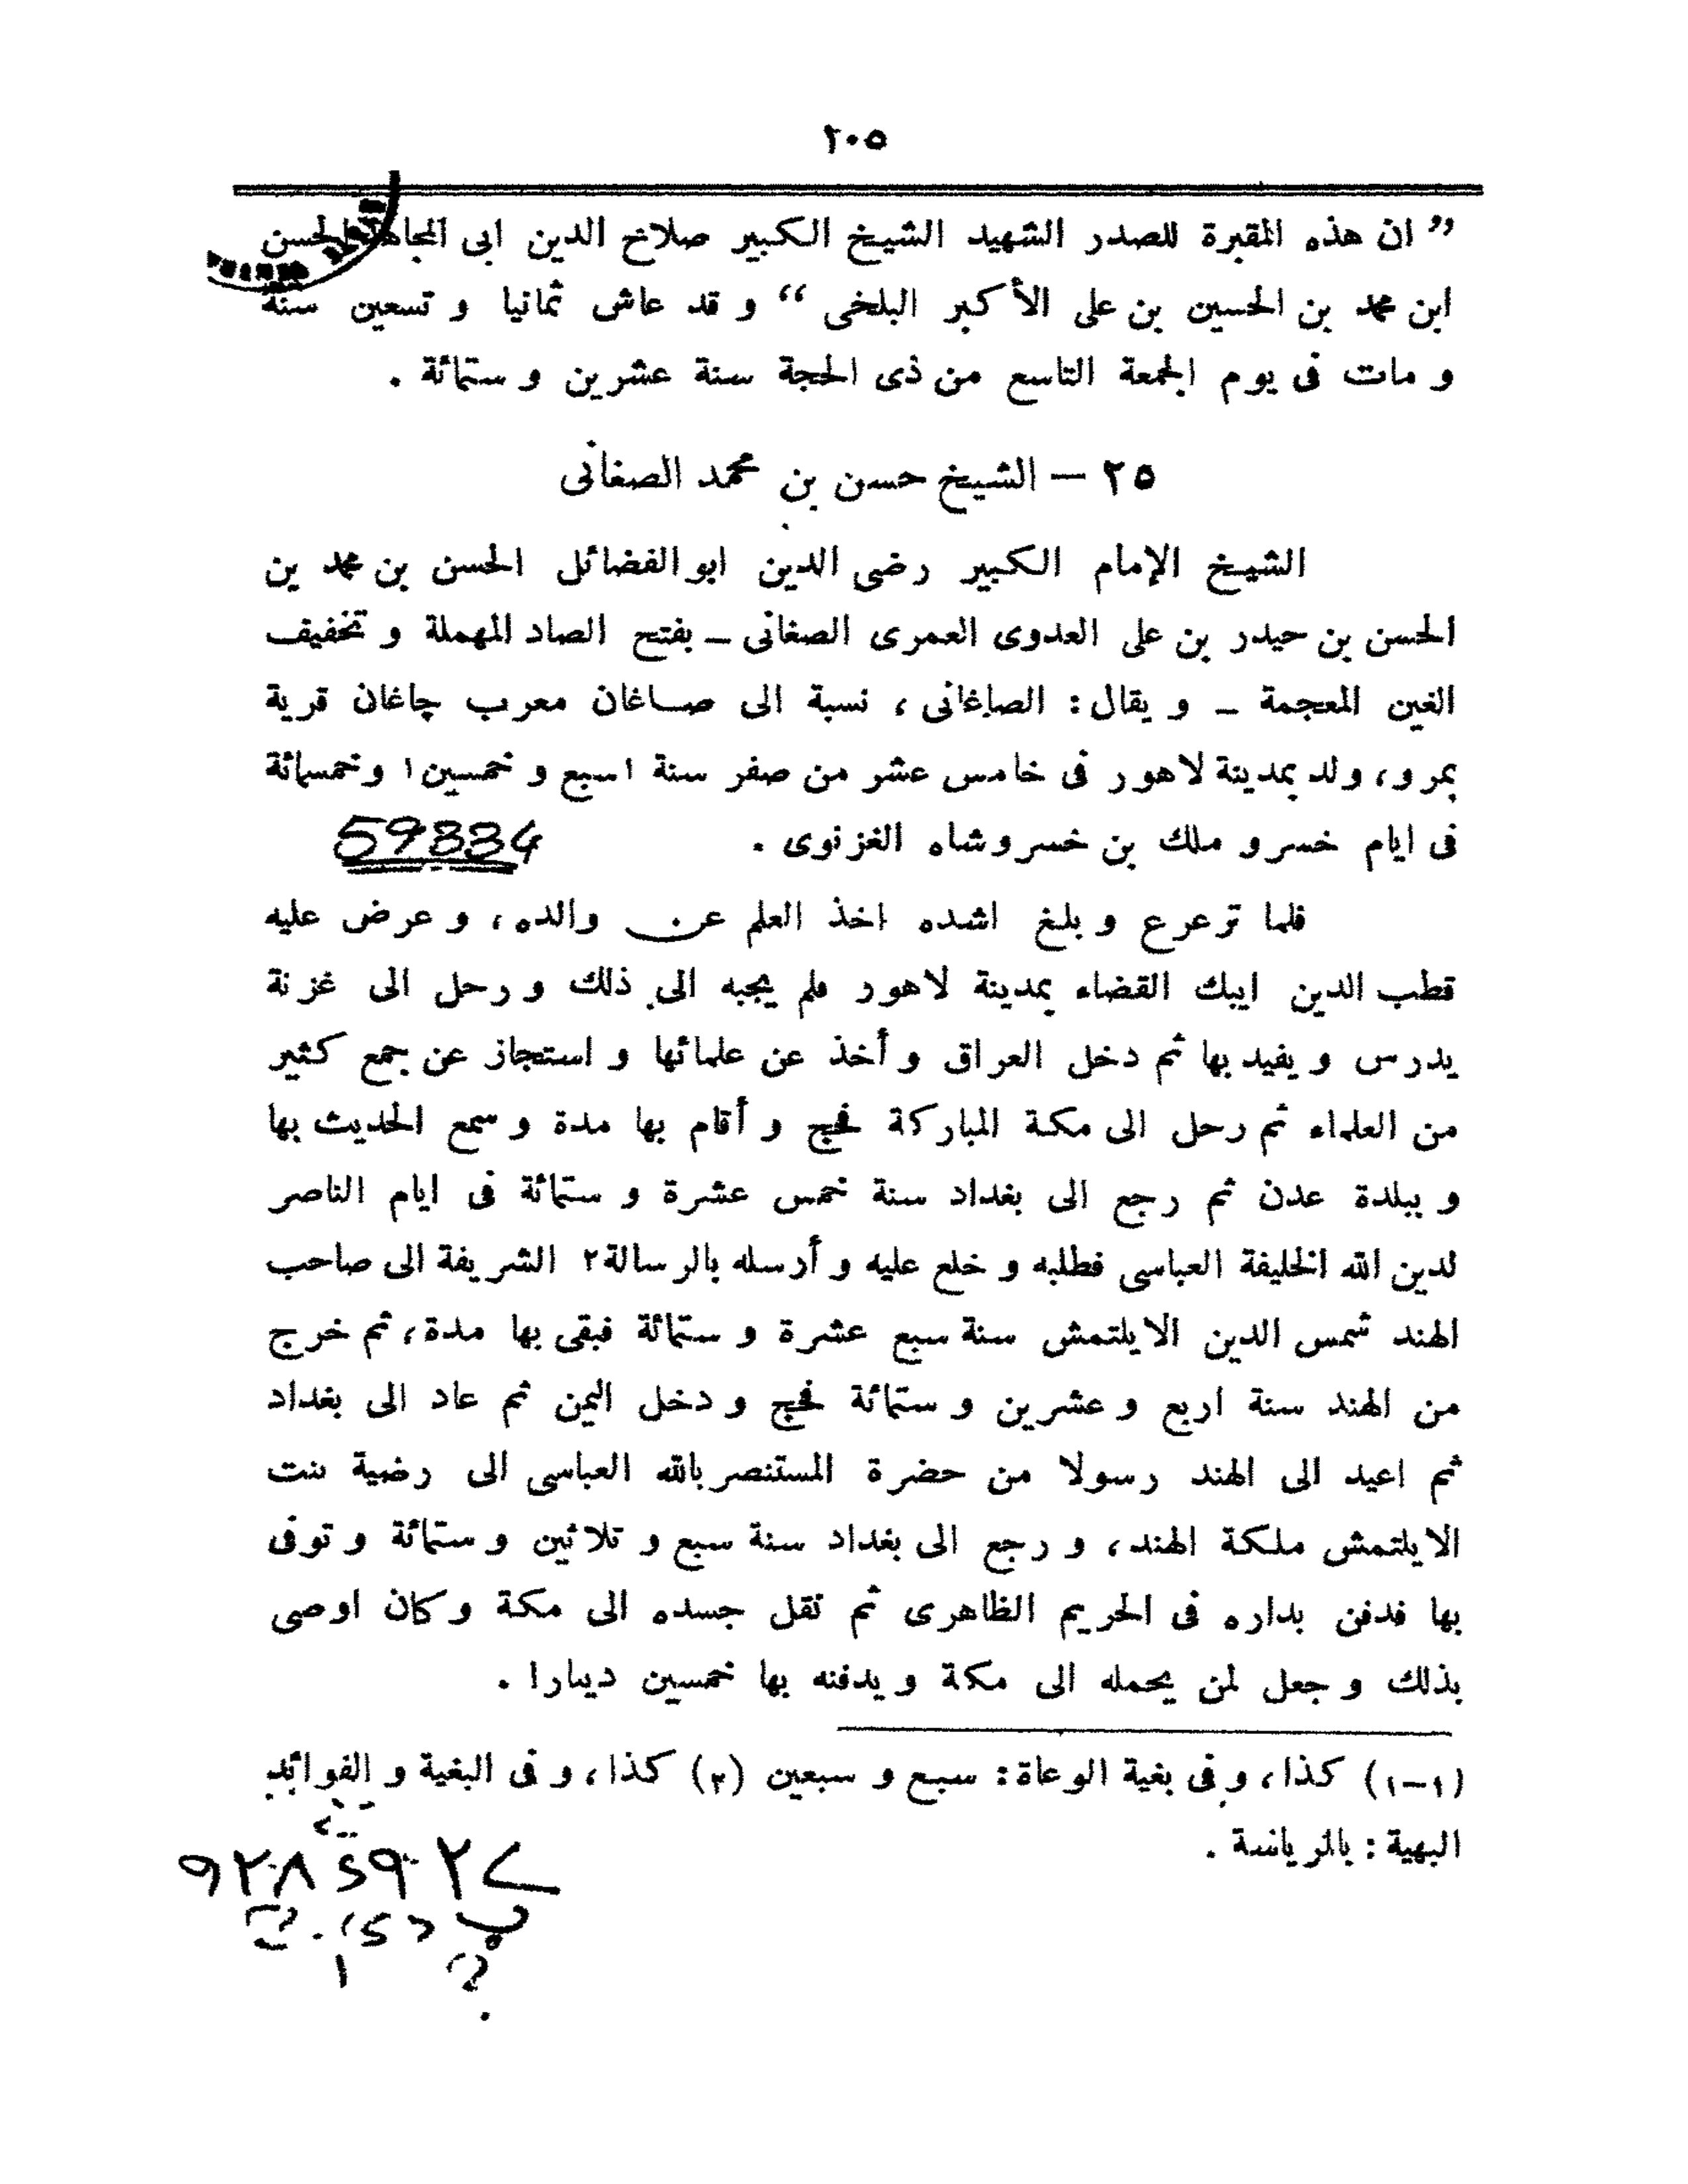 ٢٠٥
” ان هذه المقبرة للصدر الشهيد الشيخ الكبير صلاح الدين ابى المجاهد الحسن
ابن محمد بن الحسين بن على الأكبر البلخى “ و قد عاش ثمانيا و تسعين سنة
و مات فى يوم الجمعة التاسع من ذى الحجة سنة عشرين و ستمائة .
٢٥ – الشيخ حسن بن محمد الصغانى
الشيخ الإمام الكبير رضى الدين ابو الفضائل الحسن بن محمد بن
الحسن بن حيدر بن على العدوى العمرى الصغانى – بفتح الصاد المهملة و تخفيف
الغين المعجمة – و يقال : الصاغانى ، نسبة الى صاغان معرب چاغان قرية
بمرو، ولد بمدينة لاهور فى خامس عشر من صفر سنة ١سبع و خمسين١ وخمسمائة
فى ايام خسرو ملك بن خسروشاه الغزنوى .
59834
فلما ترعرع و بلغ اشده اخذ العلم عن والده ، و عرض عليه
قطب الدين ايبك القضاء بمدينة لاهور فلم يجبه الى ذلك و رحل الى غزنة
يدرس و يفيد بها ثم دخل العراق و أخذ عن علمائها و استجاز عن جمع كثير
من العلماء ثم رحل الى مكة المباركة فحج و أقام بها مدة و سمع الحديث بها
و ببلدة عدن ثم رجع الى بغداد سنة خمس عشرة و ستمائة فى ايام الناصر
لدين الله الخليفة العباسى فطلبه و خلع عليه و أرسله بالرسالة٢ الشريفة الى صاحب
الهند شمس الدين الايلتمش سنة سبع عشرة و ستمائة فبقى بها مدة، ثم خرج
من الهند سنة اربع و عشرين و ستمائة فحج و دخل اليمن ثم عاد الى بغداد
ثم اعيد الى الهند رسولا من حضرة المستنصر بالله العباسى الى رضية بنت
الايلتمش ملكة الهند ، و رجع الى بغداد سنة سبع و ثلاثين و ستمائة و توفى
بها فدفن بداره فى الحريم الظاهرى ثم نقل جسده الى مكة و كان اوصى
بذلك و جعل لمن يحمله الى مكة و يدفنه بها خمسين دينارا .
(١–١) كذا ، و فى بغية الوعاة : سبع و سبعين (٢) كذا ، و فى البغية و الفوائد
البهية : بالرياسة .